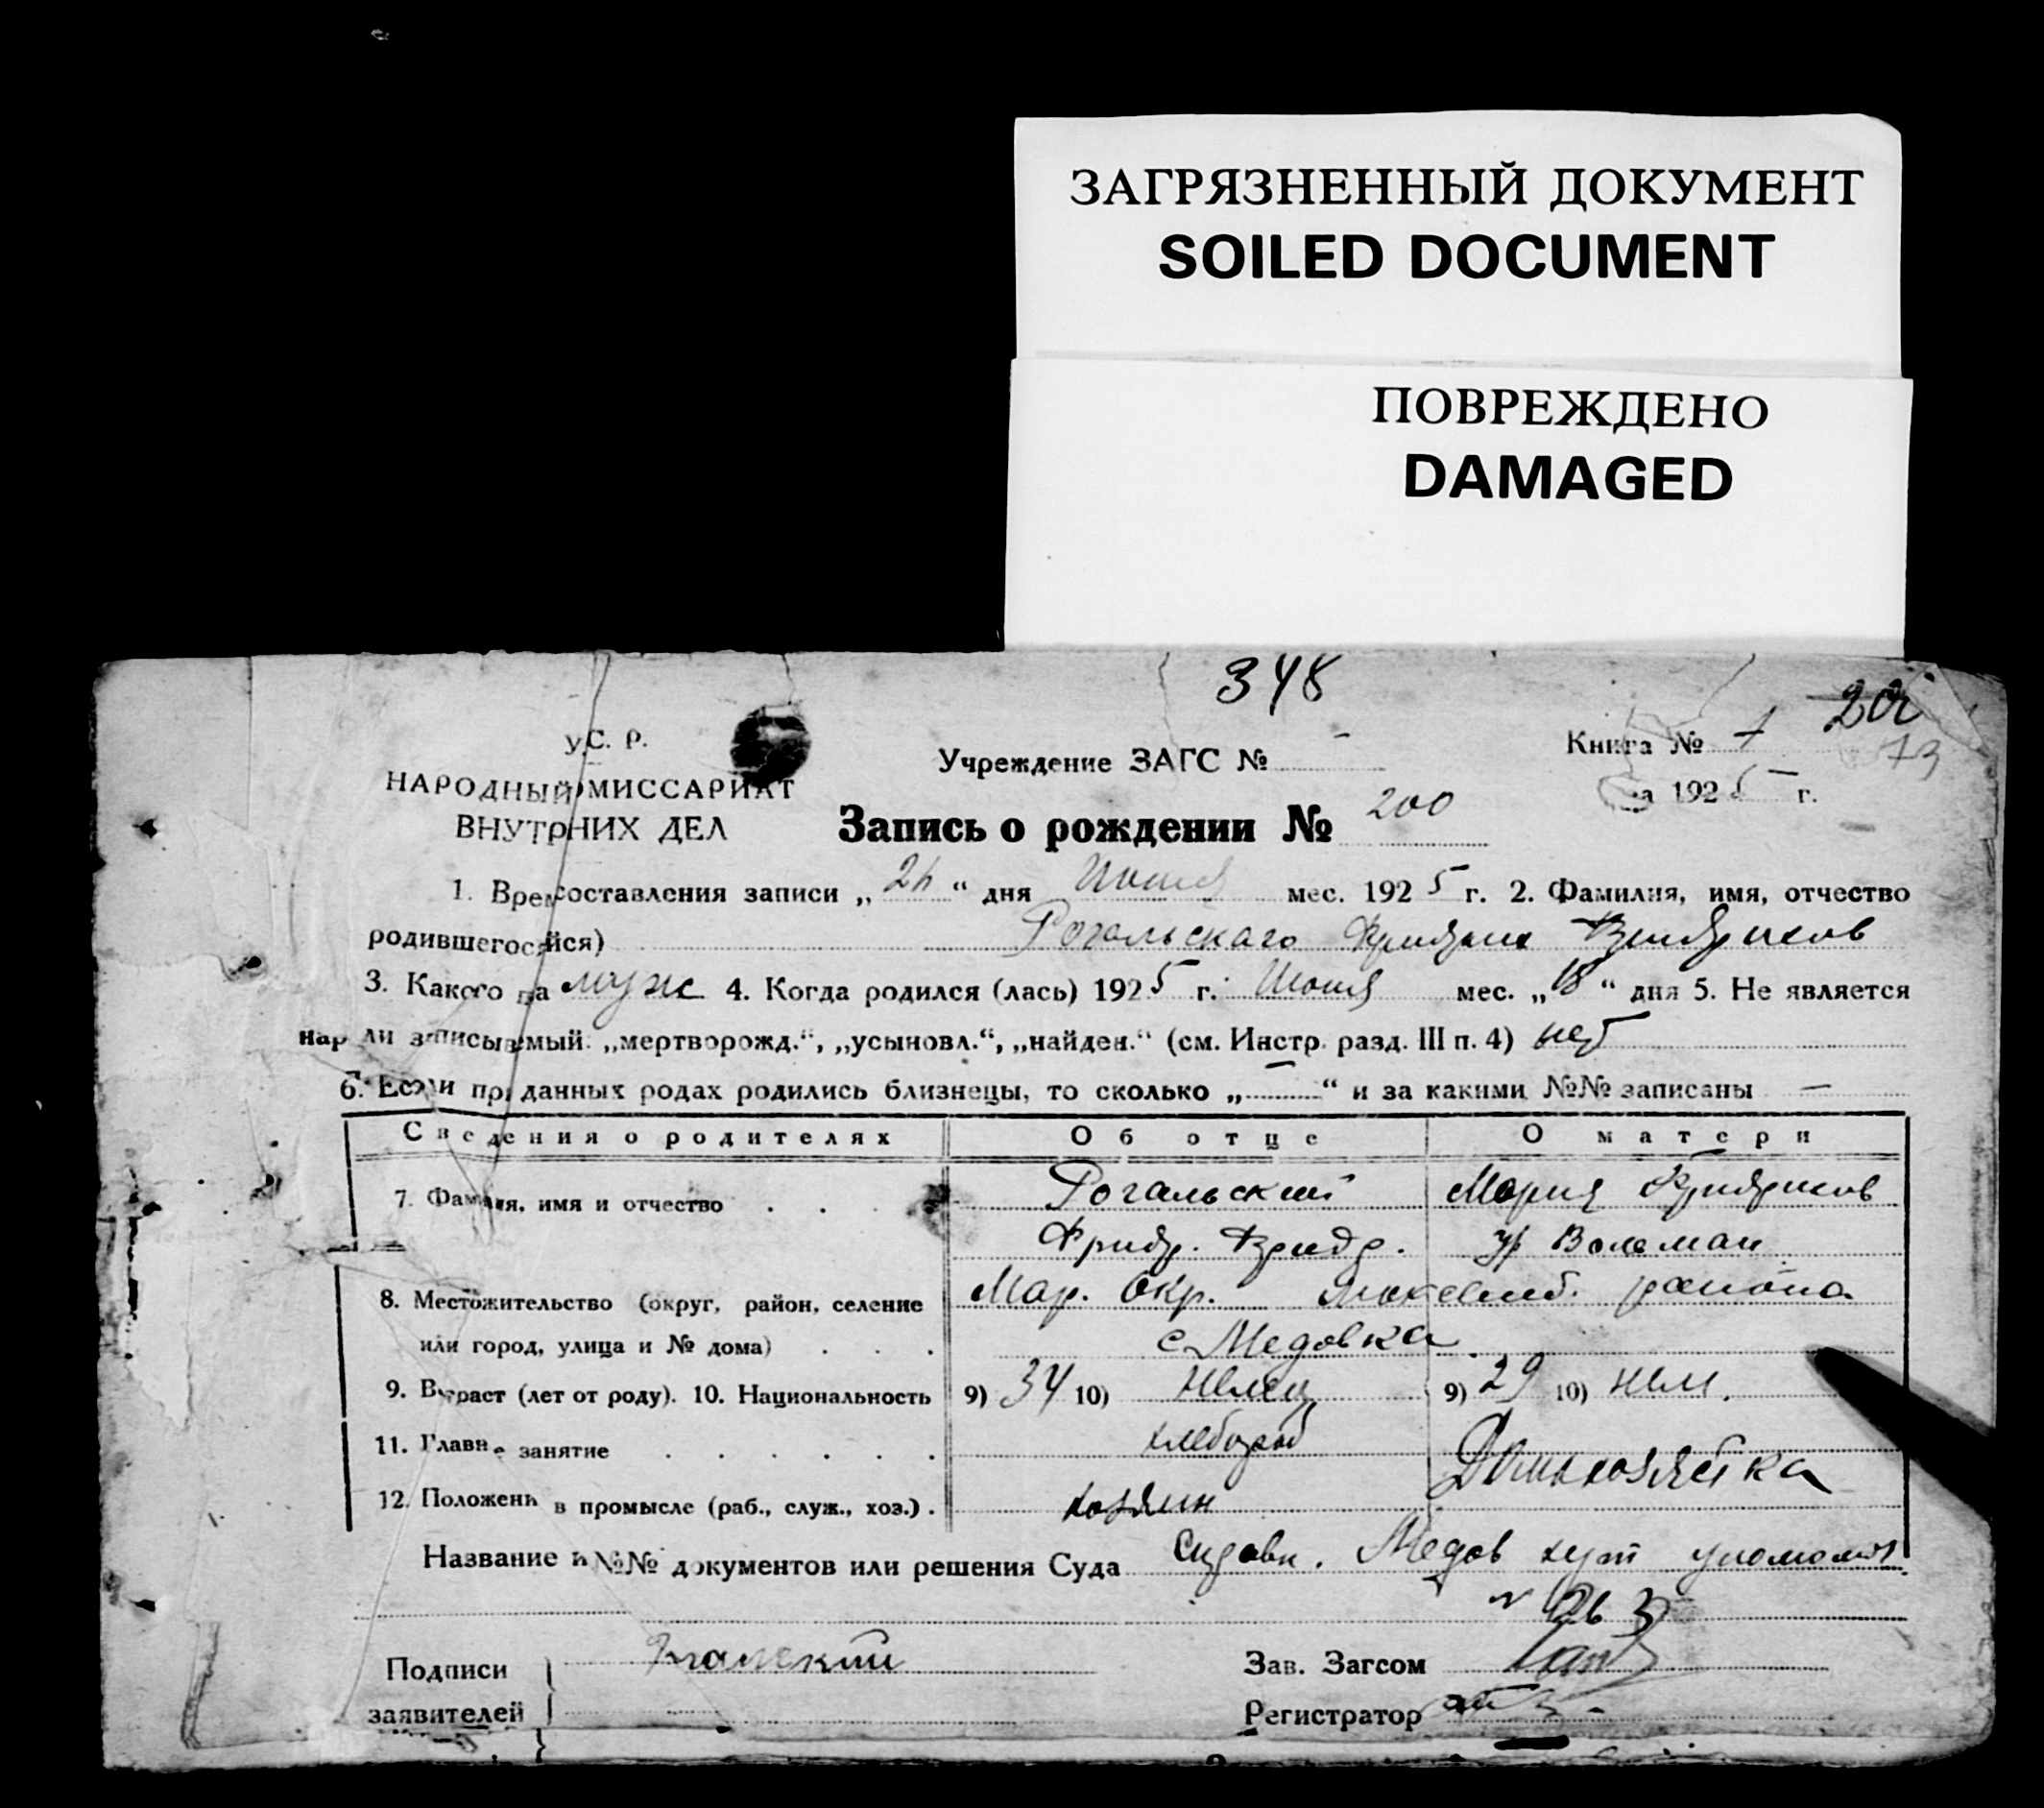 ЗАГРЯЗНЕННЫЙ ДОКУМЕНТ
SOILED DOCUMENT
ПОВРЕЖДЕНО
DAMAGED
348
200
73
У.С. Р.
НАРОДНЫЙ МИССАРИАТ
ВНУТРНИХ ДЕЛ
Учреждение ЗАГС № -
Книга № 1
за 1925 г.
Запись о рождении № 200
1. Врем составления записи „ “ дня Июня мес. 1925 г. 2. Фамилия, имя, отчество
родившегося йся) Рогальскаго Фридриха Фридрихов
3. Какого па муж 4. Когда родился (лась) 1925 г. Июня мес. „18“ дня 5. Не является
ли записываемый: „мертворожд.“, „усыновл.“, „найден.“ (см. Инстр. разд. III п. 4) нет
6. Если при данных родах родились близнецы, то сколько „—“ и за какими №№ записаны —
Сведения о родителях Об отце О матери
7. Фамилия, имя и отчество Рогальский Мария Фридрихов
Фридр. Фридр. ур Волеман
8. Местожительство (округ, район, селение Мар. Окр. района
или город, улица и № дома) с. Медовка
9. Возраст (лет от роду). 10. Национальность 9) 34 10) Немец 9) 29 10) нем.
11. Главн. занятие хлебороб Домохозяйка
12. Положень в промысле (раб., служ., хоз.) хозяин
Название и №№ документов или решения Суда Медов хут
№ 263
Подписи Рогальский Зав. Загсом
заявителей Регистратор